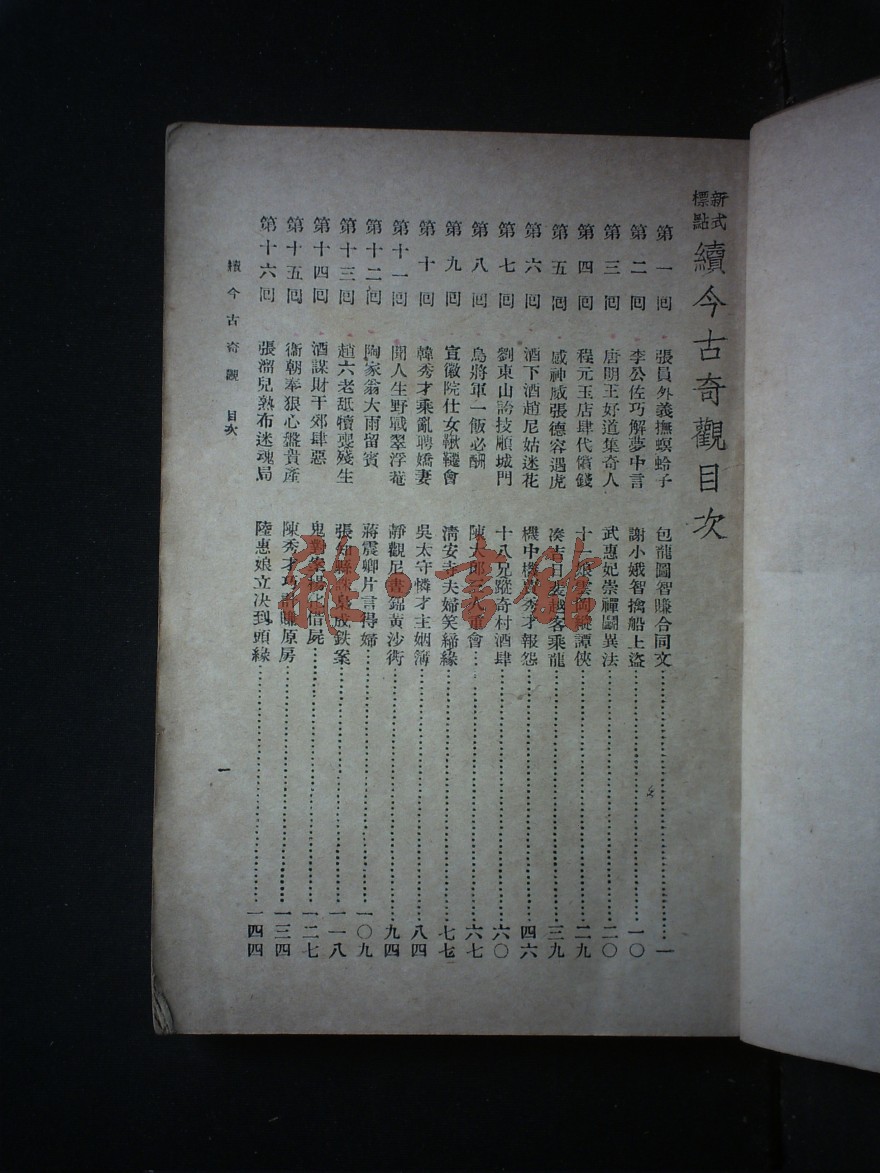 新式標點 續今古奇觀目次
第一回 張員外義撫螟蛉子 包龍圖智賺合同文 一
第二回 李公佐巧解夢中言 謝小娥智擒船上盜 一〇
第三回 唐明王好道集奇人 武惠妃崇禪鬬異法 二〇
第四回 程元玉店肆代償錢 十一娘雲岡縱譚俠 二九
第五回 感神威張德容遇虎 湊吉日裴越客乘龍 三九
第六回 酒下酒趙尼姑迷花 機中機賈秀才報怨 四六
第七回 劉東山誇技順城門 十八兄蹤奇村酒肆 六〇
第八回 烏將軍一飯必酬 陳大郎三人重會 六七
第九回 宣徽院仕女鞦韆會 淸安寺夫婦笑締緣 七七
第十回 韓秀才乘亂聘嬌妻 吳太守憐才主姻簿 八四
第十一回 聞人生野戰翠浮菴 靜觀尼晝錦黃沙衖 九四
第十二回 陶家翁大雨留賓 蔣震卿片言得婦 一〇九
第十三回 趙六老舐犢喪殘生 張知縣誅梟成鉄案 一一八
第十四回 酒謀財于郊肆惡 鬼對案楊化借屍 一二七
第十五回 衞朝奉狠心盤貴產 陳秀才巧計賺原房 一三四
第十六回 張溜兒熟布迷魂局 陸惠娘立決到頭緣 一四四
續今古奇觀 目次
一